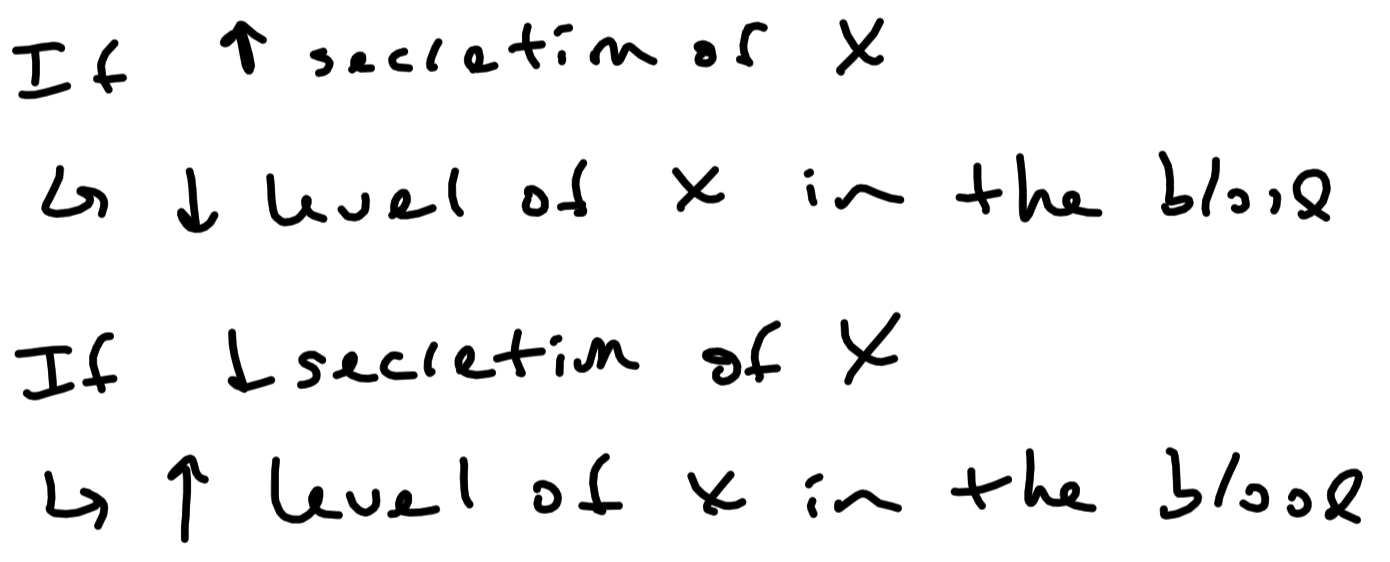 If ↑ secretion of X
↳ ↓ level of X in the blood
If ↓ secretion of X
↳ ↑ level of X in the blood